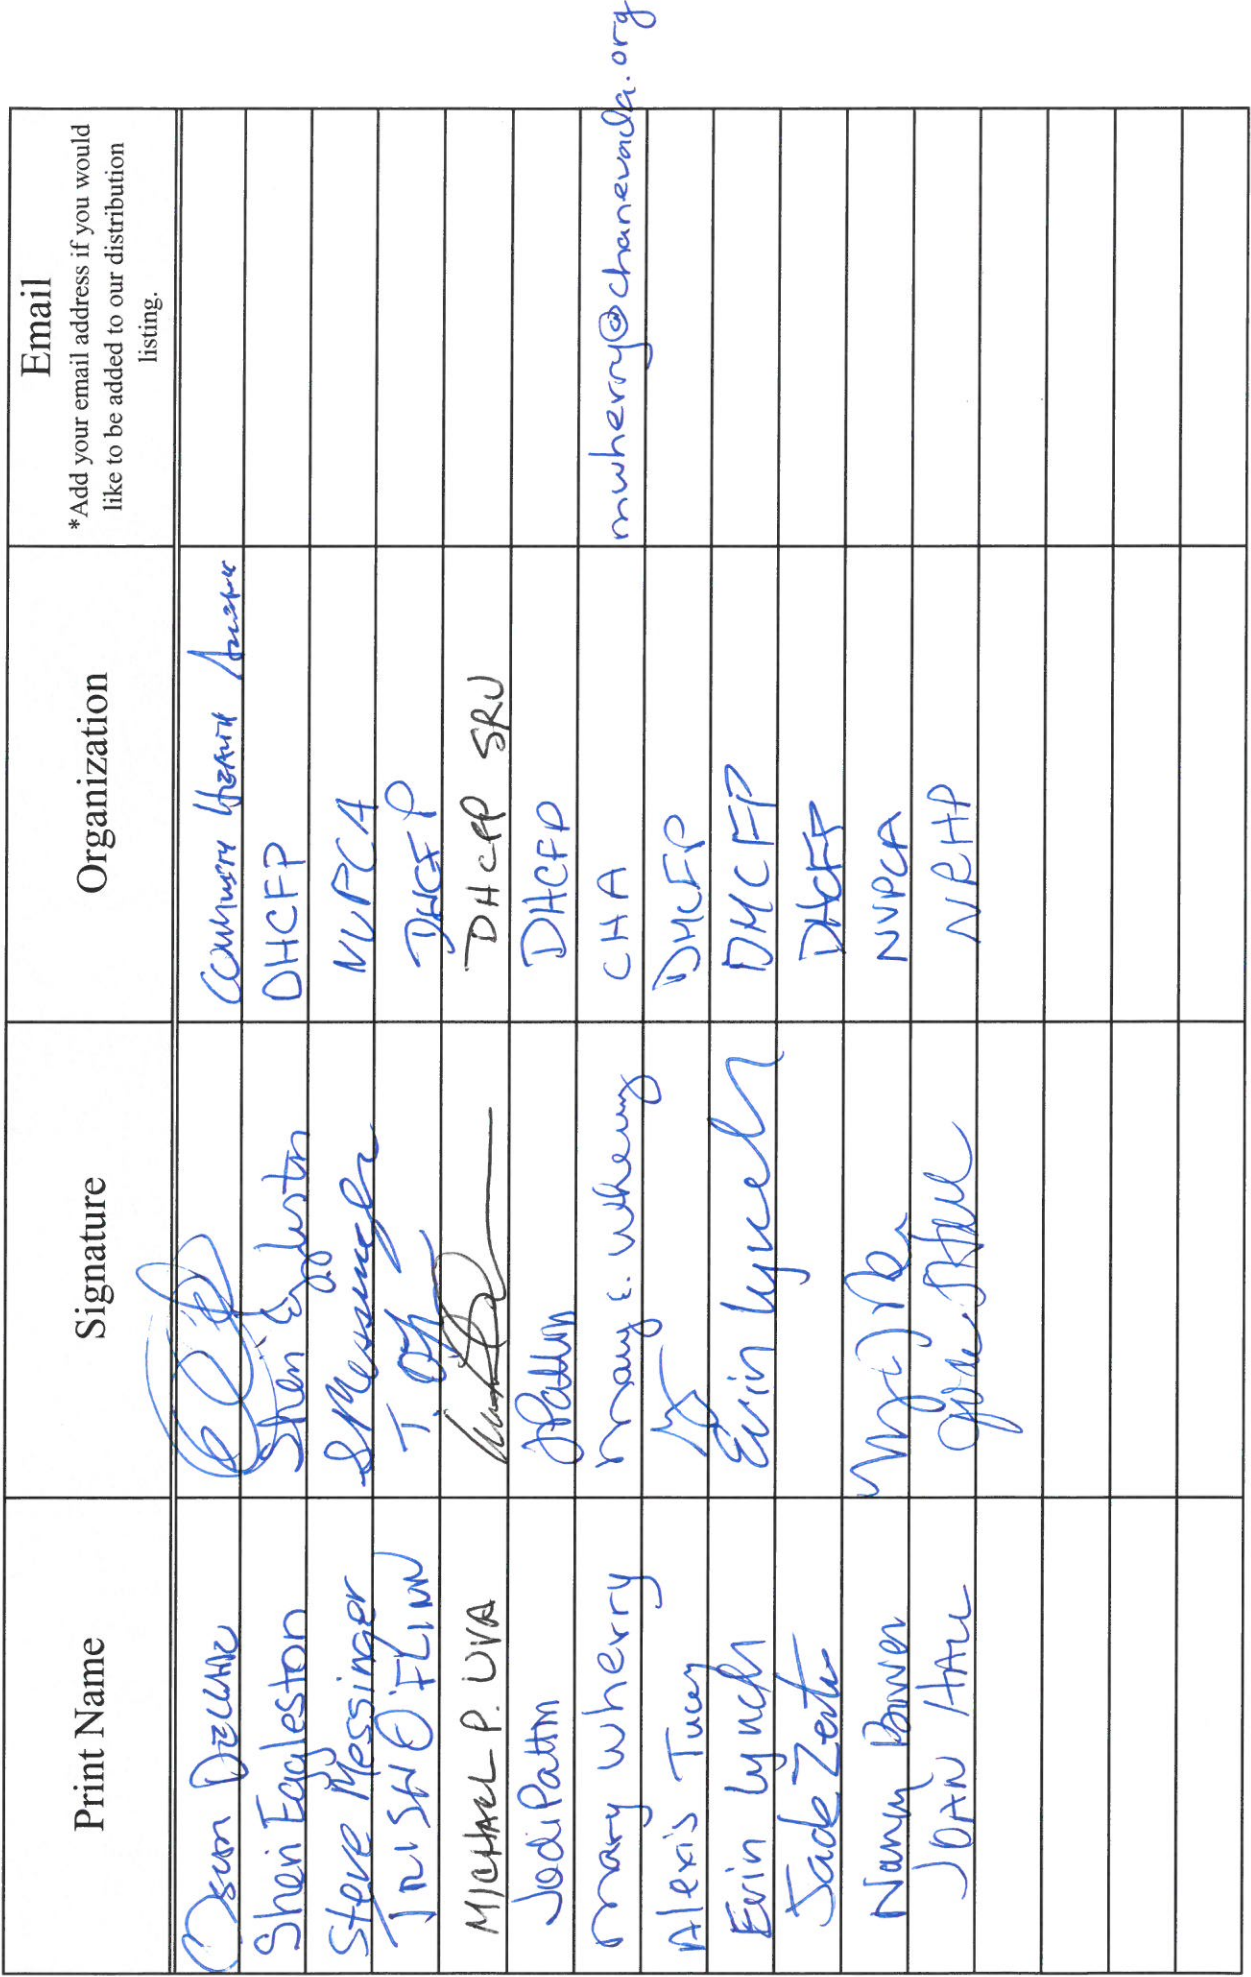 Print Name Signature Organization Email
*Add your email address if you would
like to be added to our distribution
listing.
Sheri Eggleston Sheri Eggleston DHCFP
Steve Messinger SMessinger NVPCA
TRISH O'FLINN T. DHCFP
MICHAEL P. UVA DHCFP SRU
Jodi Patton JPatton DHCFP
Mary Wherry Mary C. Wherry CHA mwherry@chanevada.org
Alexis Tucey DHCFP
Erin Lynch Erin Lynch DHCFP
Jade Zentz DHCFP
Nancy Bowen NVPCA
JOAN HALL Joan Hall NRHP